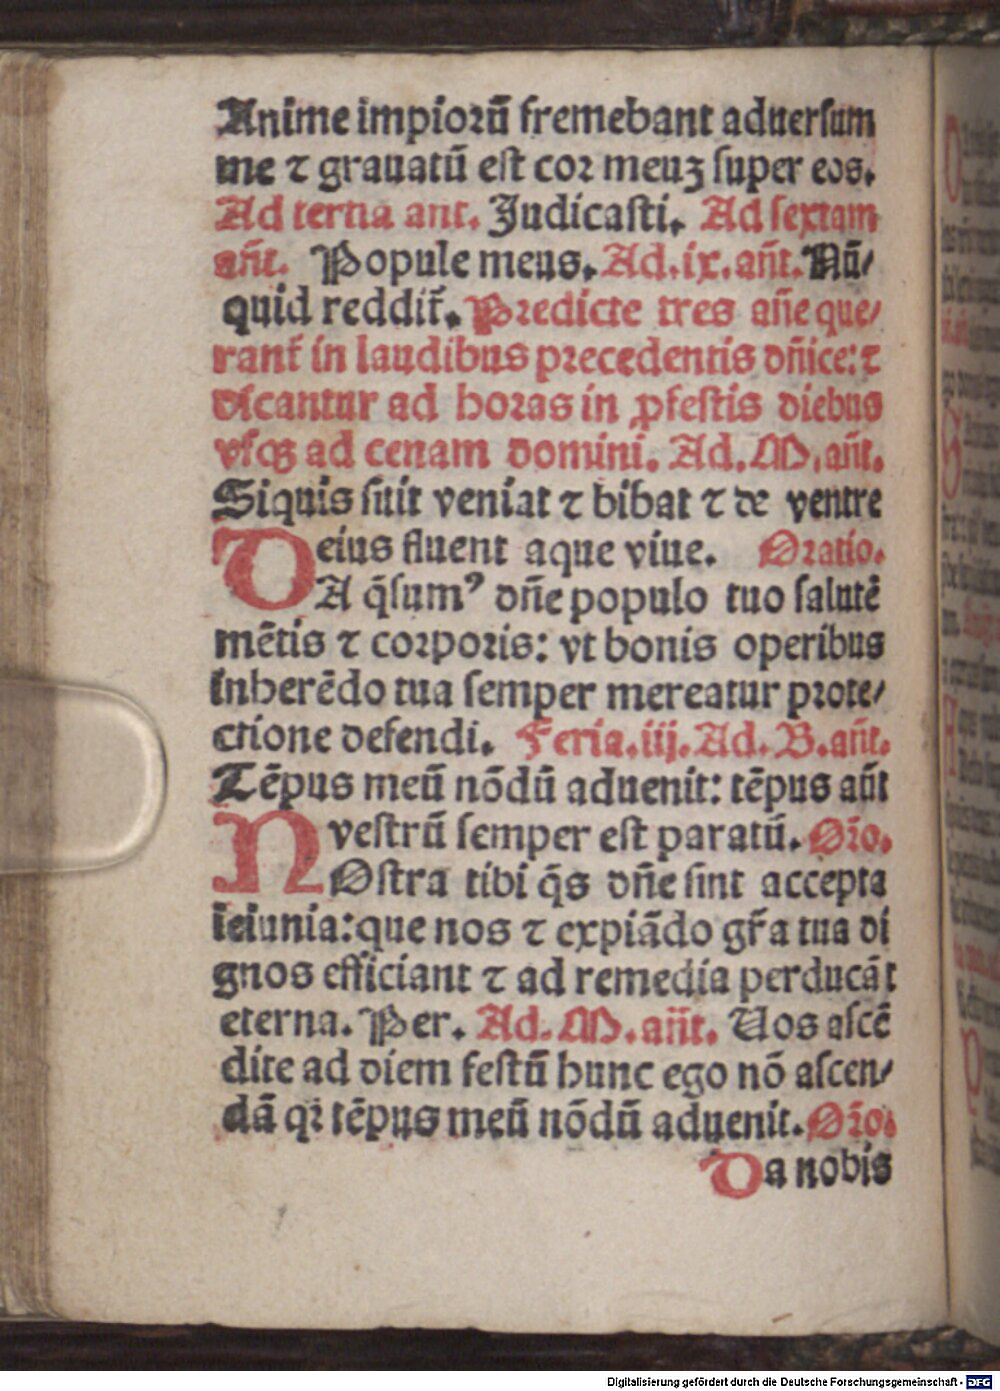 Anime impiorū fremebant aduersum
me ⁊ grauatū est cor meuꝫ super eos.
Ad tertia ant. Judicasti. Ad sextam
añt. Popule meus. Ad.ix.añt. Nū/
quid reddit̄. Predicte tres añe que/
rant̄ in laudibus precedentis dñice: ⁊
dicantur ad horas in ꝓfestis diebus
vsqꝫ ad cenam domini. Ad.M.añt.
Siquis sitit veniat ⁊ bibat ⁊ de ventre
eius fluent aque viue. Oratio.
DA q̄sumꝰ dñe populo tuo salutē
mētis ⁊ corporis: vt bonis operibus
inherēdo tua semper mereatur prote/
ctione defendi. Feria.iij. Ad.B.añt.
Tēpus meū nōdū aduenit: tēpus aūt
vestrū semper est paratū. Oro.
NOstra tibi q̄s dñe sint accepta
ieiunia: que nos ⁊ expiādo gr̄a tua di
gnos efficiant ⁊ ad remedia perducāt
eterna. Per. Ad.M.añt. Uos ascē
dite ad diem festū hunc ego nō ascen/
dā qꝛ tēpus meū nōdū aduenit. Oro.
Da nobis
Digitalisierung gefördert durch die Deutsche Forschungsgemeinschaft - DFG